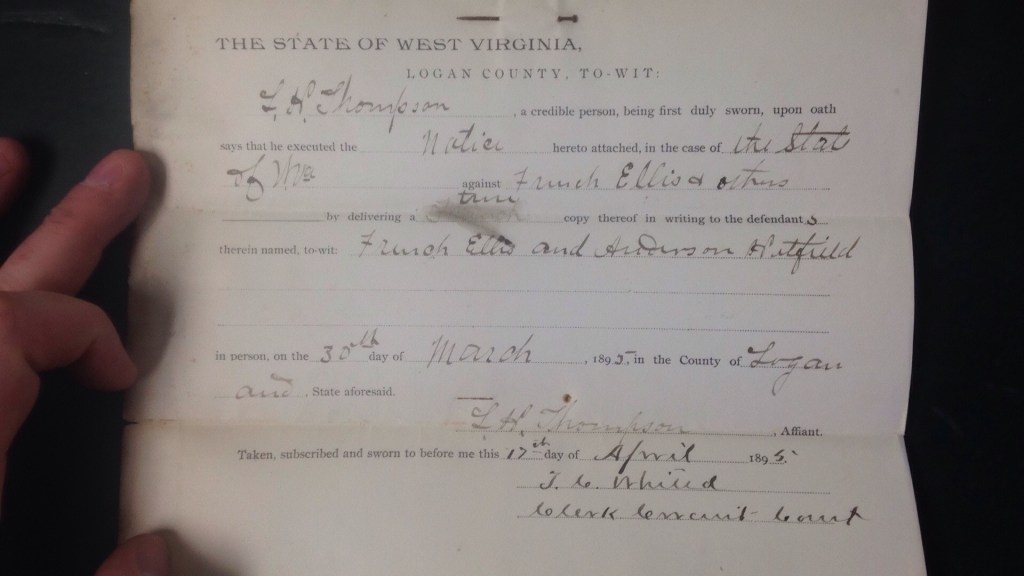 THE STATE OF WEST VIRGINIA,
LOGAN COUNTY, TO-WIT:
L. H. Thompson, a credible person, being first duly sworn, upon oath
says that he executed the Notice hereto attached, in the case of the Stat
of Wva against French Ellis & others
true
by delivering a copy thereof in writing to the defendants
therein named, to-wit: French Ellis and Anderson Hetfield
in person, on the 30th day of March, 1895, in the County of Logan
and, State aforesaid.
L. H. Thompson, Affiant.
Taken, subscribed and sworn to before me this 17th day of April 1895.
T. C. Whited
Clerk Circuit Court